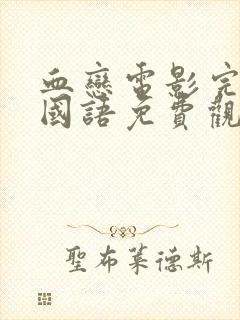 血戀電影完
國語免費觀
聖布萊德斯